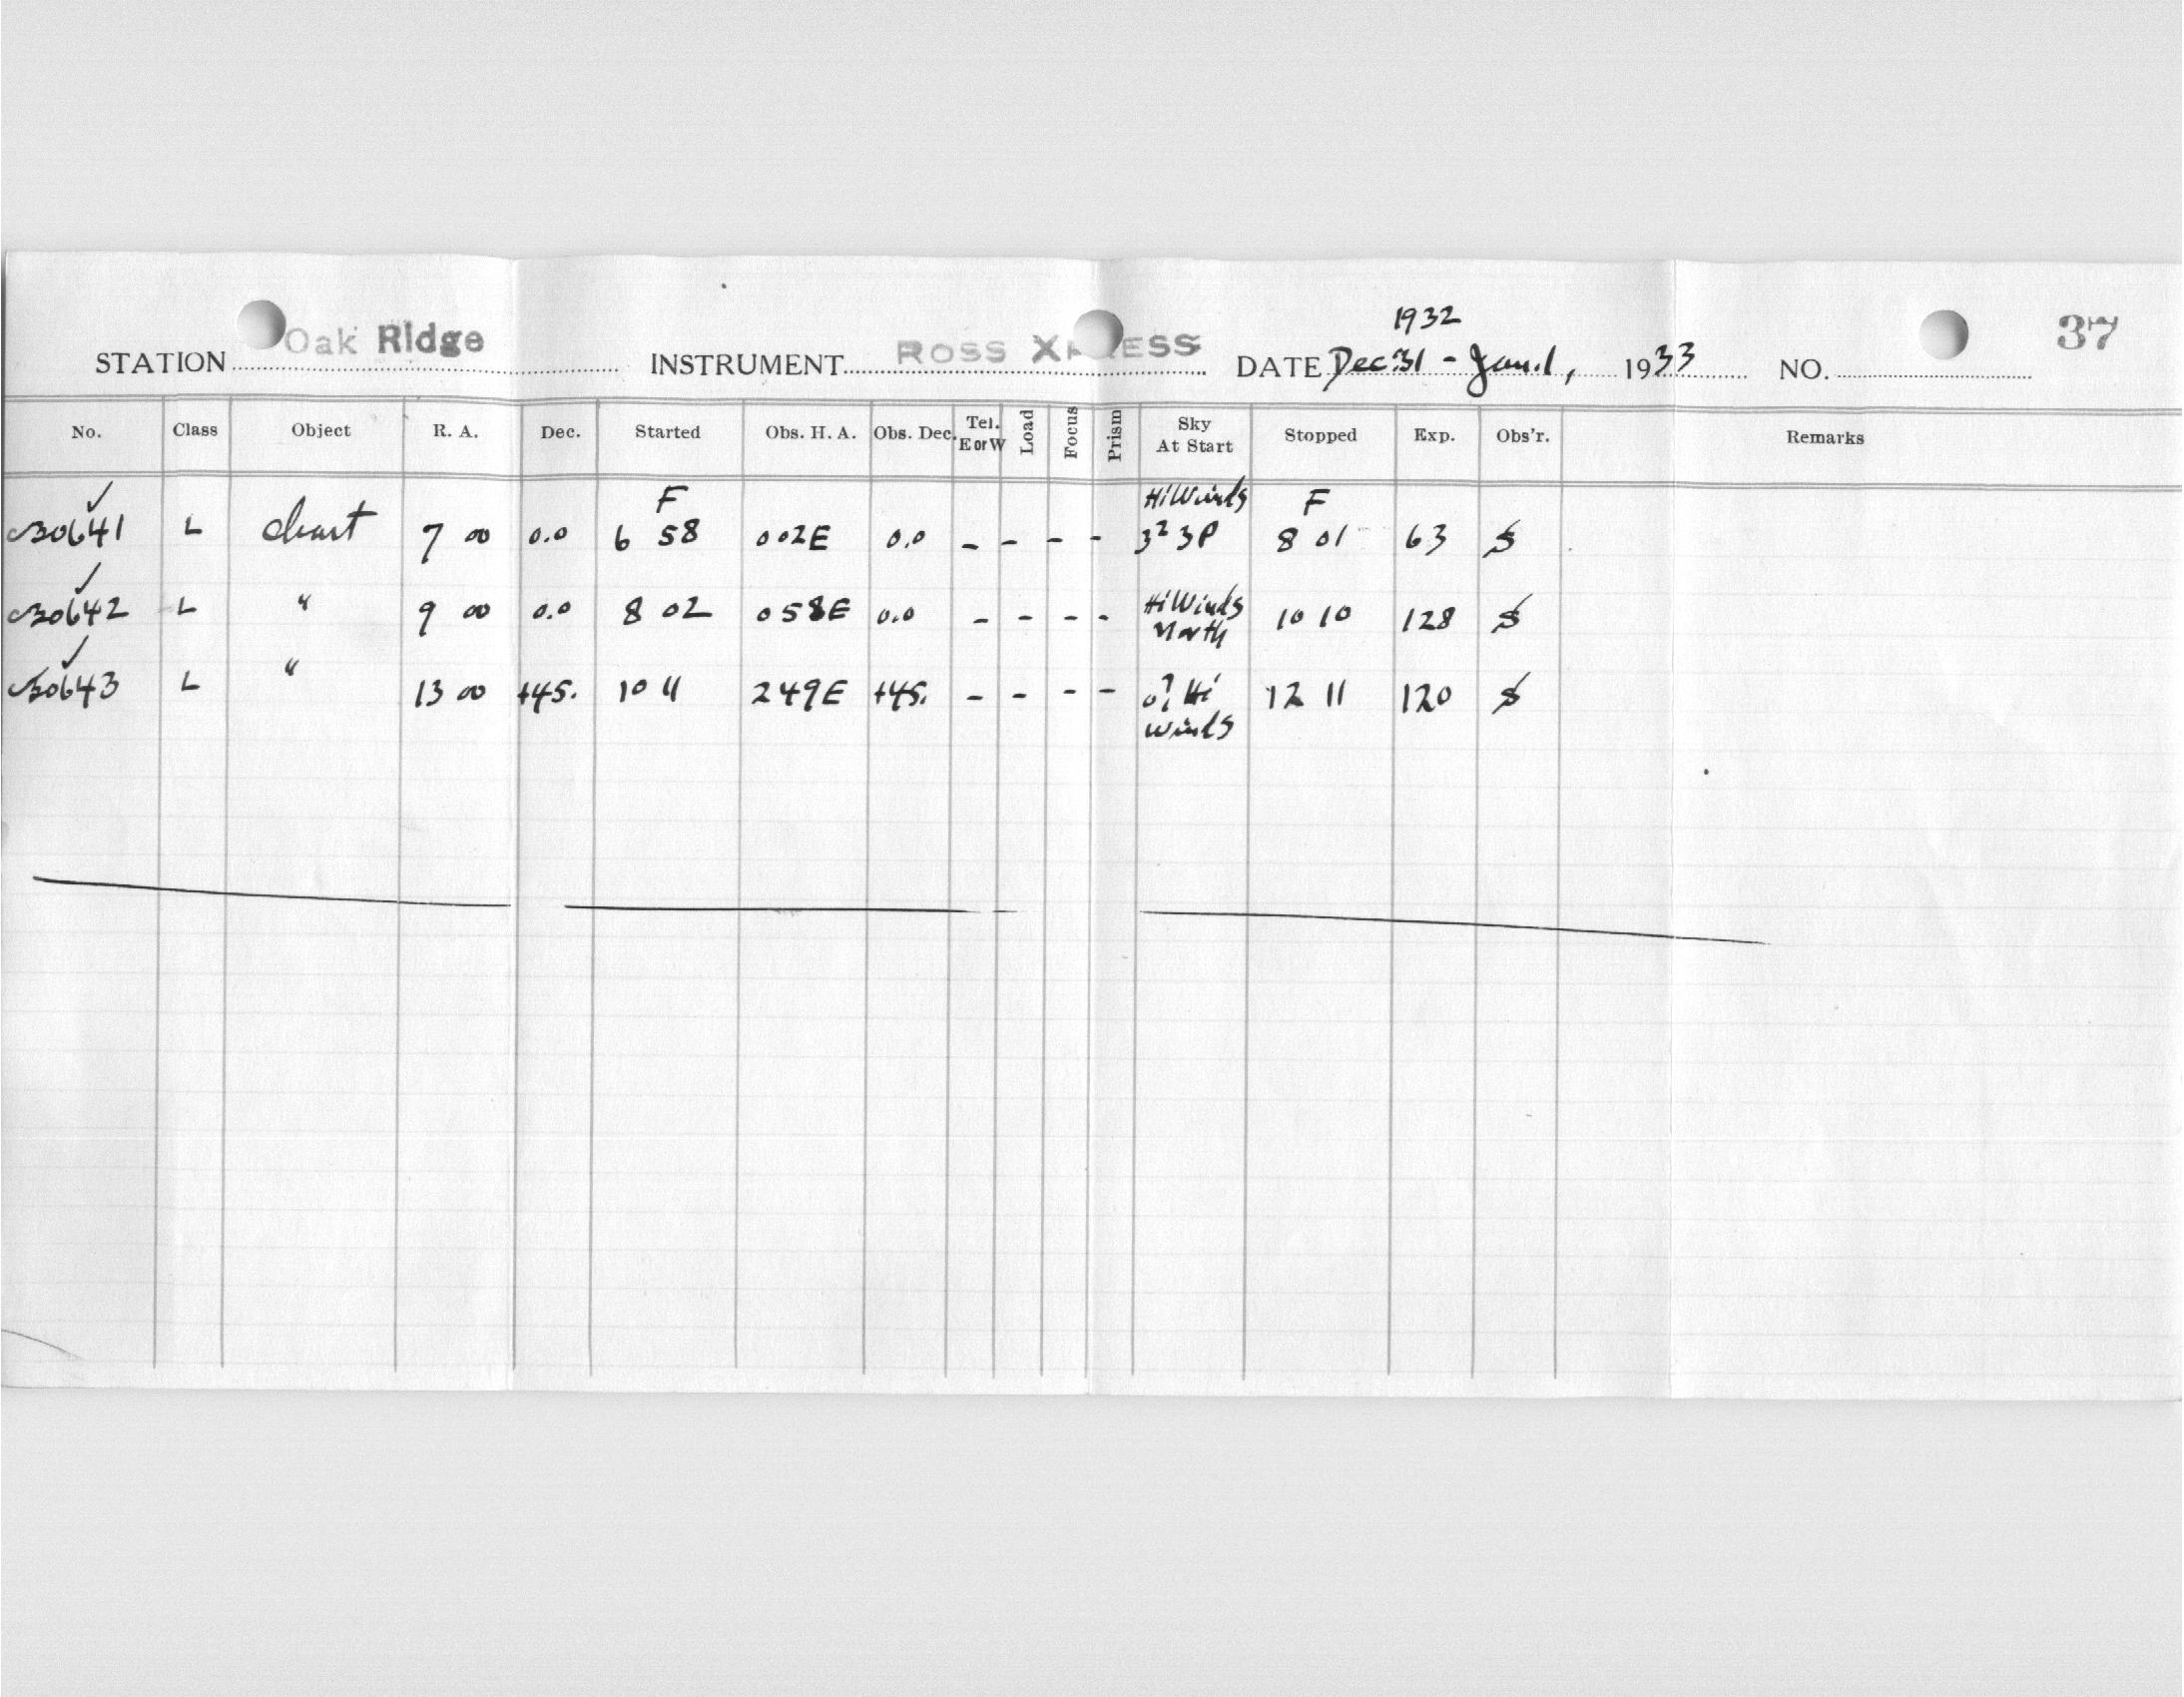 1932
37
STATION Oak Ridge INSTRUMENT ROSS XPRESS DATE Dec 31 - Jan. 1, 1933 NO.
No. Class Object R. A. Dec. Started Obs. H. A. Obs. Dec. Tel. E or W Load Focus Prism Sky At Start Stopped Exp. Obs'r. Remarks
F Hi Winds F
✓ 30641 L chart 7 00 0.0 6 58 0 02E 0.0 - - - - 3² 3P 8 01 63 S
✓ 30642 L " 9 00 0.0 8 02 0 58E 0.0 - - - - Hi Winds North 10 10 128 S
✓ 30643 L " 13 00 +45. 10 11 2 49E +45. - - - - 0? Hi Winds 12 11 120 S